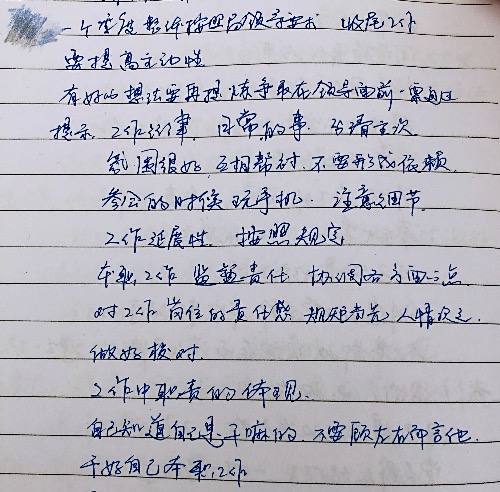 一个季度 整体按照局领导要求 收尾工作
要提高主动性
有好的想法要再提炼争取在领导面前一票通过
提示 工作纪律 日常的事 分清主次
氛围很好 互相帮衬 不要形成依赖
参会的时候玩手机 注意细节
工作延展性 按照规定
本职工作 监督责任 协调各方面
对工作岗位的责任感 规矩首先 人情次之
做好核对
工作中职责的体现
自己知道自己是干嘛的 不要顾左右而言他
干好自己本职工作